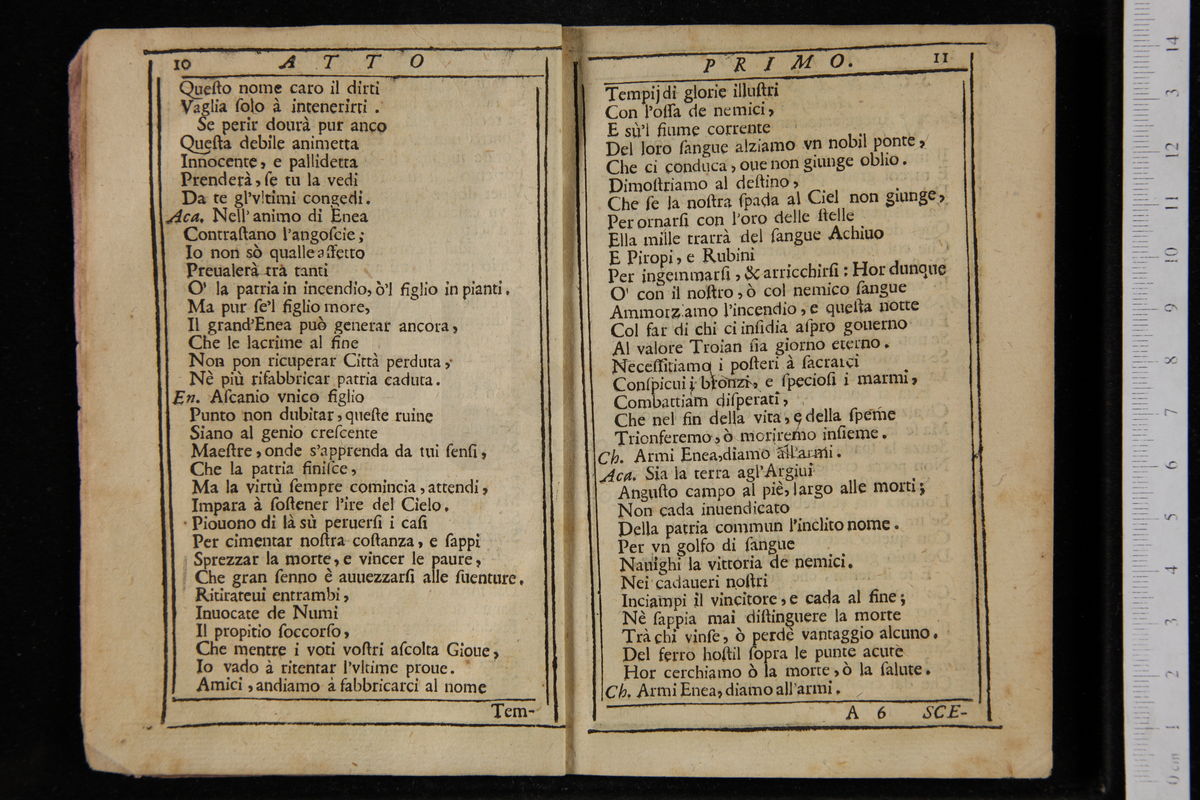 10 ATTO
Queſto nome caro il dirti
Vaglia ſolo à intenerirti.
Se perir dourà pur anco
Queſta debile animetta
Innocente, e pallidetta
Prenderà, ſe tu la vedi
Da te gl'vltimi congedi.
Aca. Nell'animo di Enea
Contraſtano l'angoſcie;
Io non sò qualle affetto
Preualerà trà tanti
O' la patria in incendio, ò'l figlio in pianti.
Ma pur ſe'l figlio more,
Il grand'Enea può generar ancora,
Che le lacrime al fine
Non pon ricuperar Città perduta,
Nè più rifabbricar patria caduta.
En. Aſcanio vnico figlio
Punto non dubitar, queſte ruine
Siano al genio creſcente
Maeſtre, onde s'apprenda da tui ſenſi,
Che la patria finiſce,
Ma la virtù ſempre comincia, attendi,
Impara à ſoſtener l'ire del Cielo.
Piouono di là sù peruerſi i caſi
Per cimentar noſtra coſtanza, e ſappi
Sprezzar la morte, e vincer le paure,
Che gran ſenno è auuezzarſi alle ſuenture.
Ritirateui entrambi,
Inuocate de Numi
Il propitio ſoccorſo,
Che mentre i voti voſtri aſcolta Gioue,
Io vado à ritentar l'vltime proue.
Amici, andiamo à fabbricarci al nome
Tem-
PRIMO. 11
Tempij di glorie illuſtri
Con l'oſſa de nemici,
E sù'l fiume corrente
Del loro ſangue alziamo vn nobil ponte,
Che ci conduca, oue non giunge oblio.
Dimoſtriamo al deſtino,
Che ſe la noſtra ſpada al Ciel non giunge,
Per ornarſi con l'oro delle ſtelle
Ella mille trarrà del ſangue Achiuo
E Piropi, e Rubini
Per ingemmarſi, & arricchirſi: Hor dunque
O' con il noſtro, ò col nemico ſangue
Ammorziamo l'incendio, e queſta notte
Col far di chi ci inſidia aſpro gouerno
Al valore Troian ſia giorno eterno.
Neceſſitiamo i poſteri à ſacrarci
Conſpicui i bronzi, e ſpecioſi i marmi,
Combattiam diſperati,
Che nel fin della vita, e della ſpeme
Trionferemo, ò moriremo inſieme.
Ch. Armi Enea, diamo all'armi.
Aca. Sia la terra agl'Argiui
Anguſto campo al piè, largo alle morti;
Non cada inuendicato
Della patria commun l'inclito nome.
Per vn golfo di ſangue
Nauighi la vittoria de nemici.
Nei cadaueri noſtri
Inciampi il vincitore, e cada al fine;
Nè ſappia mai diſtinguere la morte
Trà chi vinſe, ò perdè vantaggio alcuno.
Del ferro hoſtil ſopra le punte acute
Hor cerchiamo ò la morte, ò la ſalute.
Ch. Armi Enea, diamo all'armi.
A 6 SCE-
14
13
12
11
10
9
8
7
6
5
4
3
2
1
0 cm